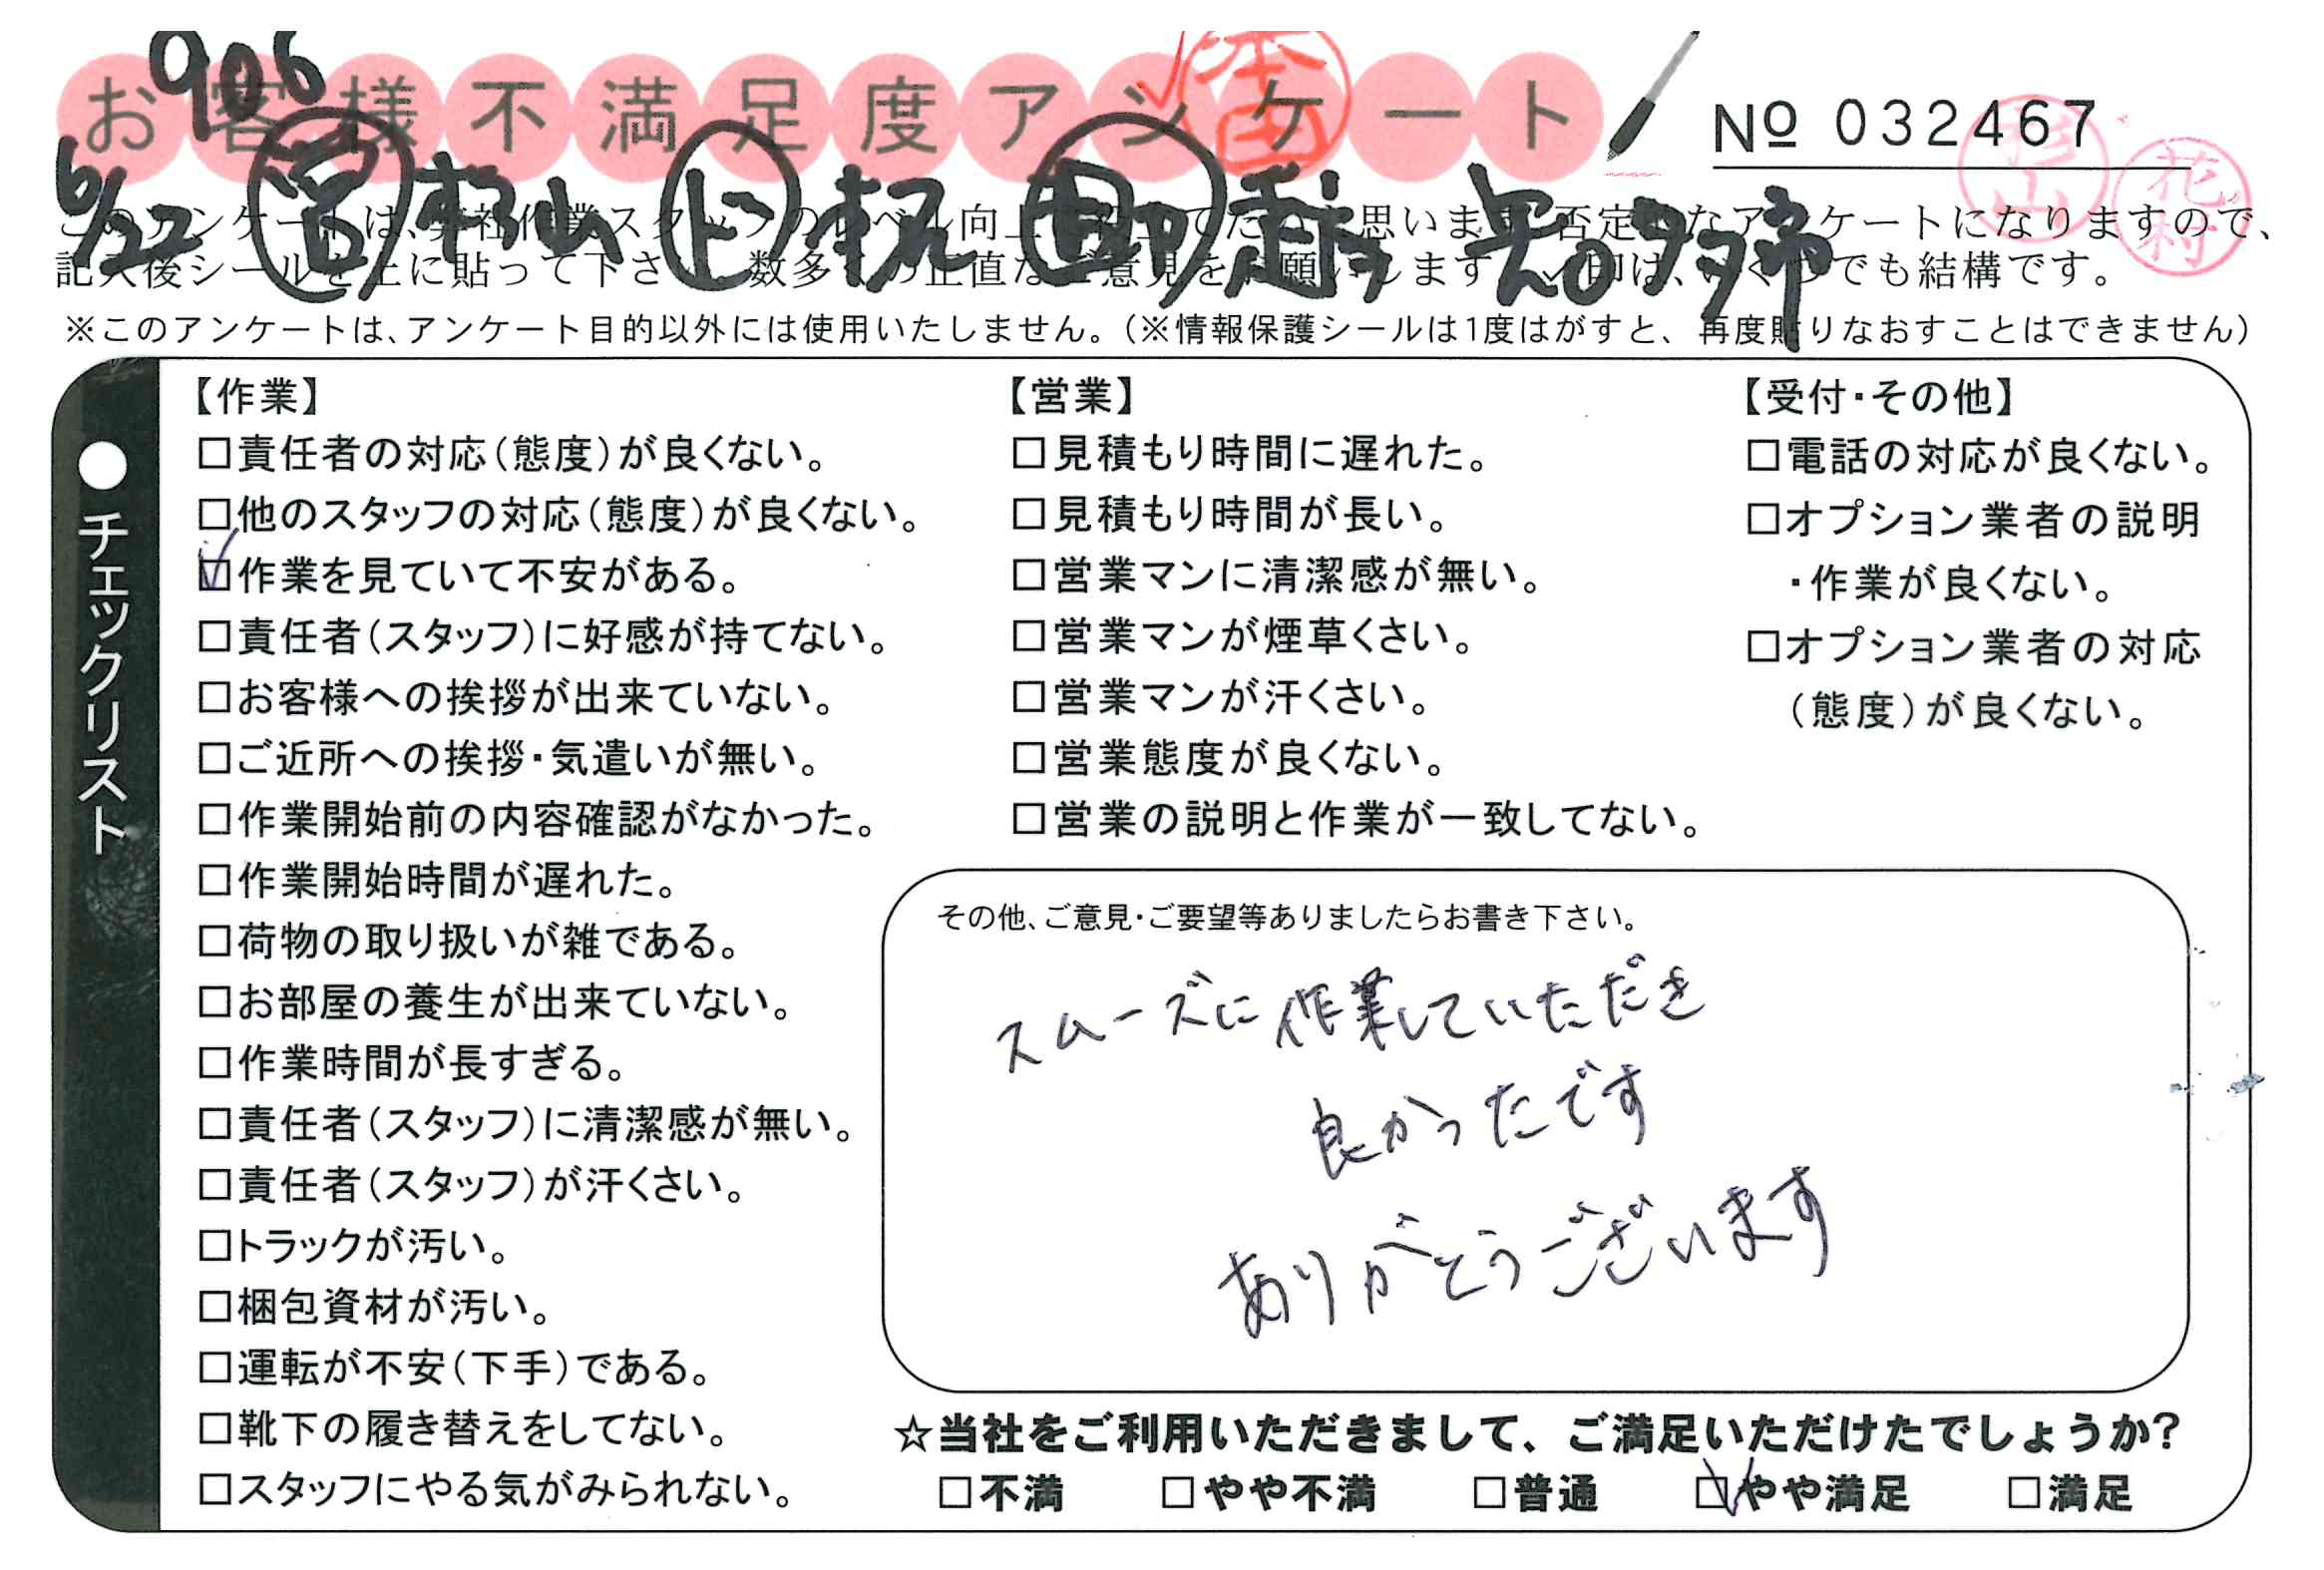 906
お客様不満足度アンケート
本田
№ 032467
杉山
花村
6/22 営 杉山 ト 助
このアンケートは、弊社作業スタッフのレベル向上に役立てたいと思います。否定的なアンケートになりますので、
記入後シールを上に貼って下さい。数多くの正直なご意見をお願いします。✓印は、いくつでも結構です。
※このアンケートは、アンケート目的以外には使用いたしません。（※情報保護シールは1度はがすと、再度貼りなおすことはできません）
●チェックリスト
【作業】
□責任者の対応（態度）が良くない。
□他のスタッフの対応（態度）が良くない。
☑作業を見ていて不安がある。
□責任者（スタッフ）に好感が持てない。
□お客様への挨拶が出来ていない。
□ご近所への挨拶・気遣いが無い。
□作業開始前の内容確認がなかった。
□作業開始時間が遅れた。
□荷物の取り扱いが雑である。
□お部屋の養生が出来ていない。
□作業時間が長すぎる。
□責任者（スタッフ）に清潔感が無い。
□責任者（スタッフ）が汗くさい。
□トラックが汚い。
□梱包資材が汚い。
□運転が不安（下手）である。
□靴下の履き替えをしてない。
□スタッフにやる気がみられない。
【営業】
□見積もり時間に遅れた。
□見積もり時間が長い。
□営業マンに清潔感が無い。
□営業マンが煙草くさい。
□営業マンが汗くさい。
□営業態度が良くない。
□営業の説明と作業が一致してない。
【受付・その他】
□電話の対応が良くない。
□オプション業者の説明
・作業が良くない。
□オプション業者の対応
（態度）が良くない。
その他、ご意見・ご要望等ありましたらお書き下さい。
スムーズに作業していただき
良かったです
ありがとうございます
☆当社をご利用いただきまして、ご満足いただけたでしょうか？
□不満 □やや不満 □普通 ☑やや満足 □満足